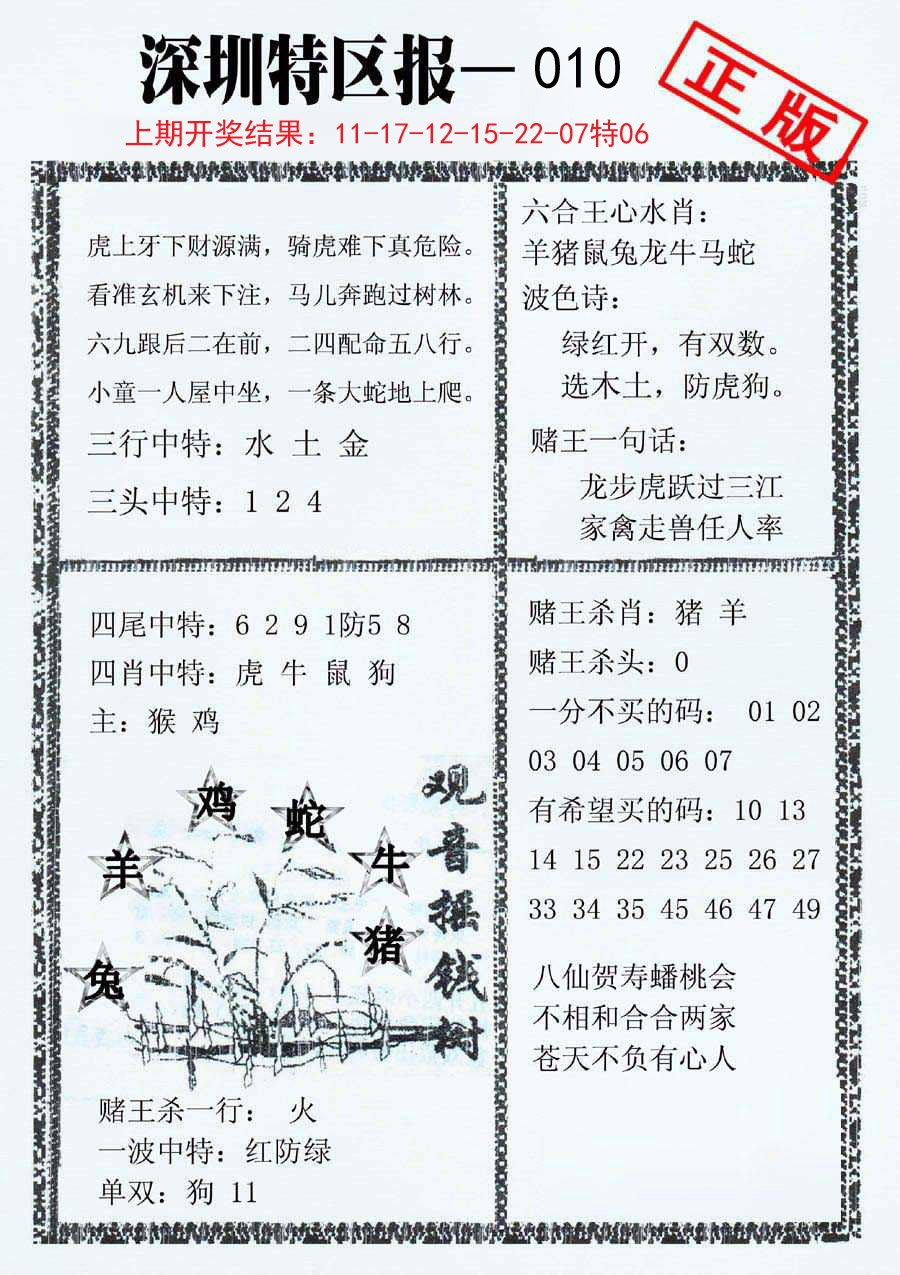 深圳特区报—010
正版
上期开奖结果：11-17-12-15-22-07特06
虎上牙下财源满，骑虎难下真危险。
看准玄机来下注，马儿奔跑过树林。
六九跟后二在前，二四配命五八行。
小童一人屋中坐，一条大蛇地上爬。
三行中特：水 土 金
三头中特：1 2 4
六合王心水肖：
羊猪鼠兔龙牛马蛇
波色诗：
绿红开，有双数。
选木土，防虎狗。
赌王一句话：
龙步虎跃过三江
家禽走兽任人率
四尾中特：6 2 9 1防5 8
四肖中特：虎 牛 鼠 狗
主：猴 鸡
鸡
蛇
羊
牛
猪
兔
观音摇钱树
赌王杀一行： 火
一波中特：红防绿
单双：狗 11
赌王杀肖：猪 羊
赌王杀头：0
一分不买的码： 01 02
03 04 05 06 07
有希望买的码：10 13
14 15 22 23 25 26 27
33 34 35 45 46 47 49
八仙贺寿蟠桃会
不相和合合两家
苍天不负有心人